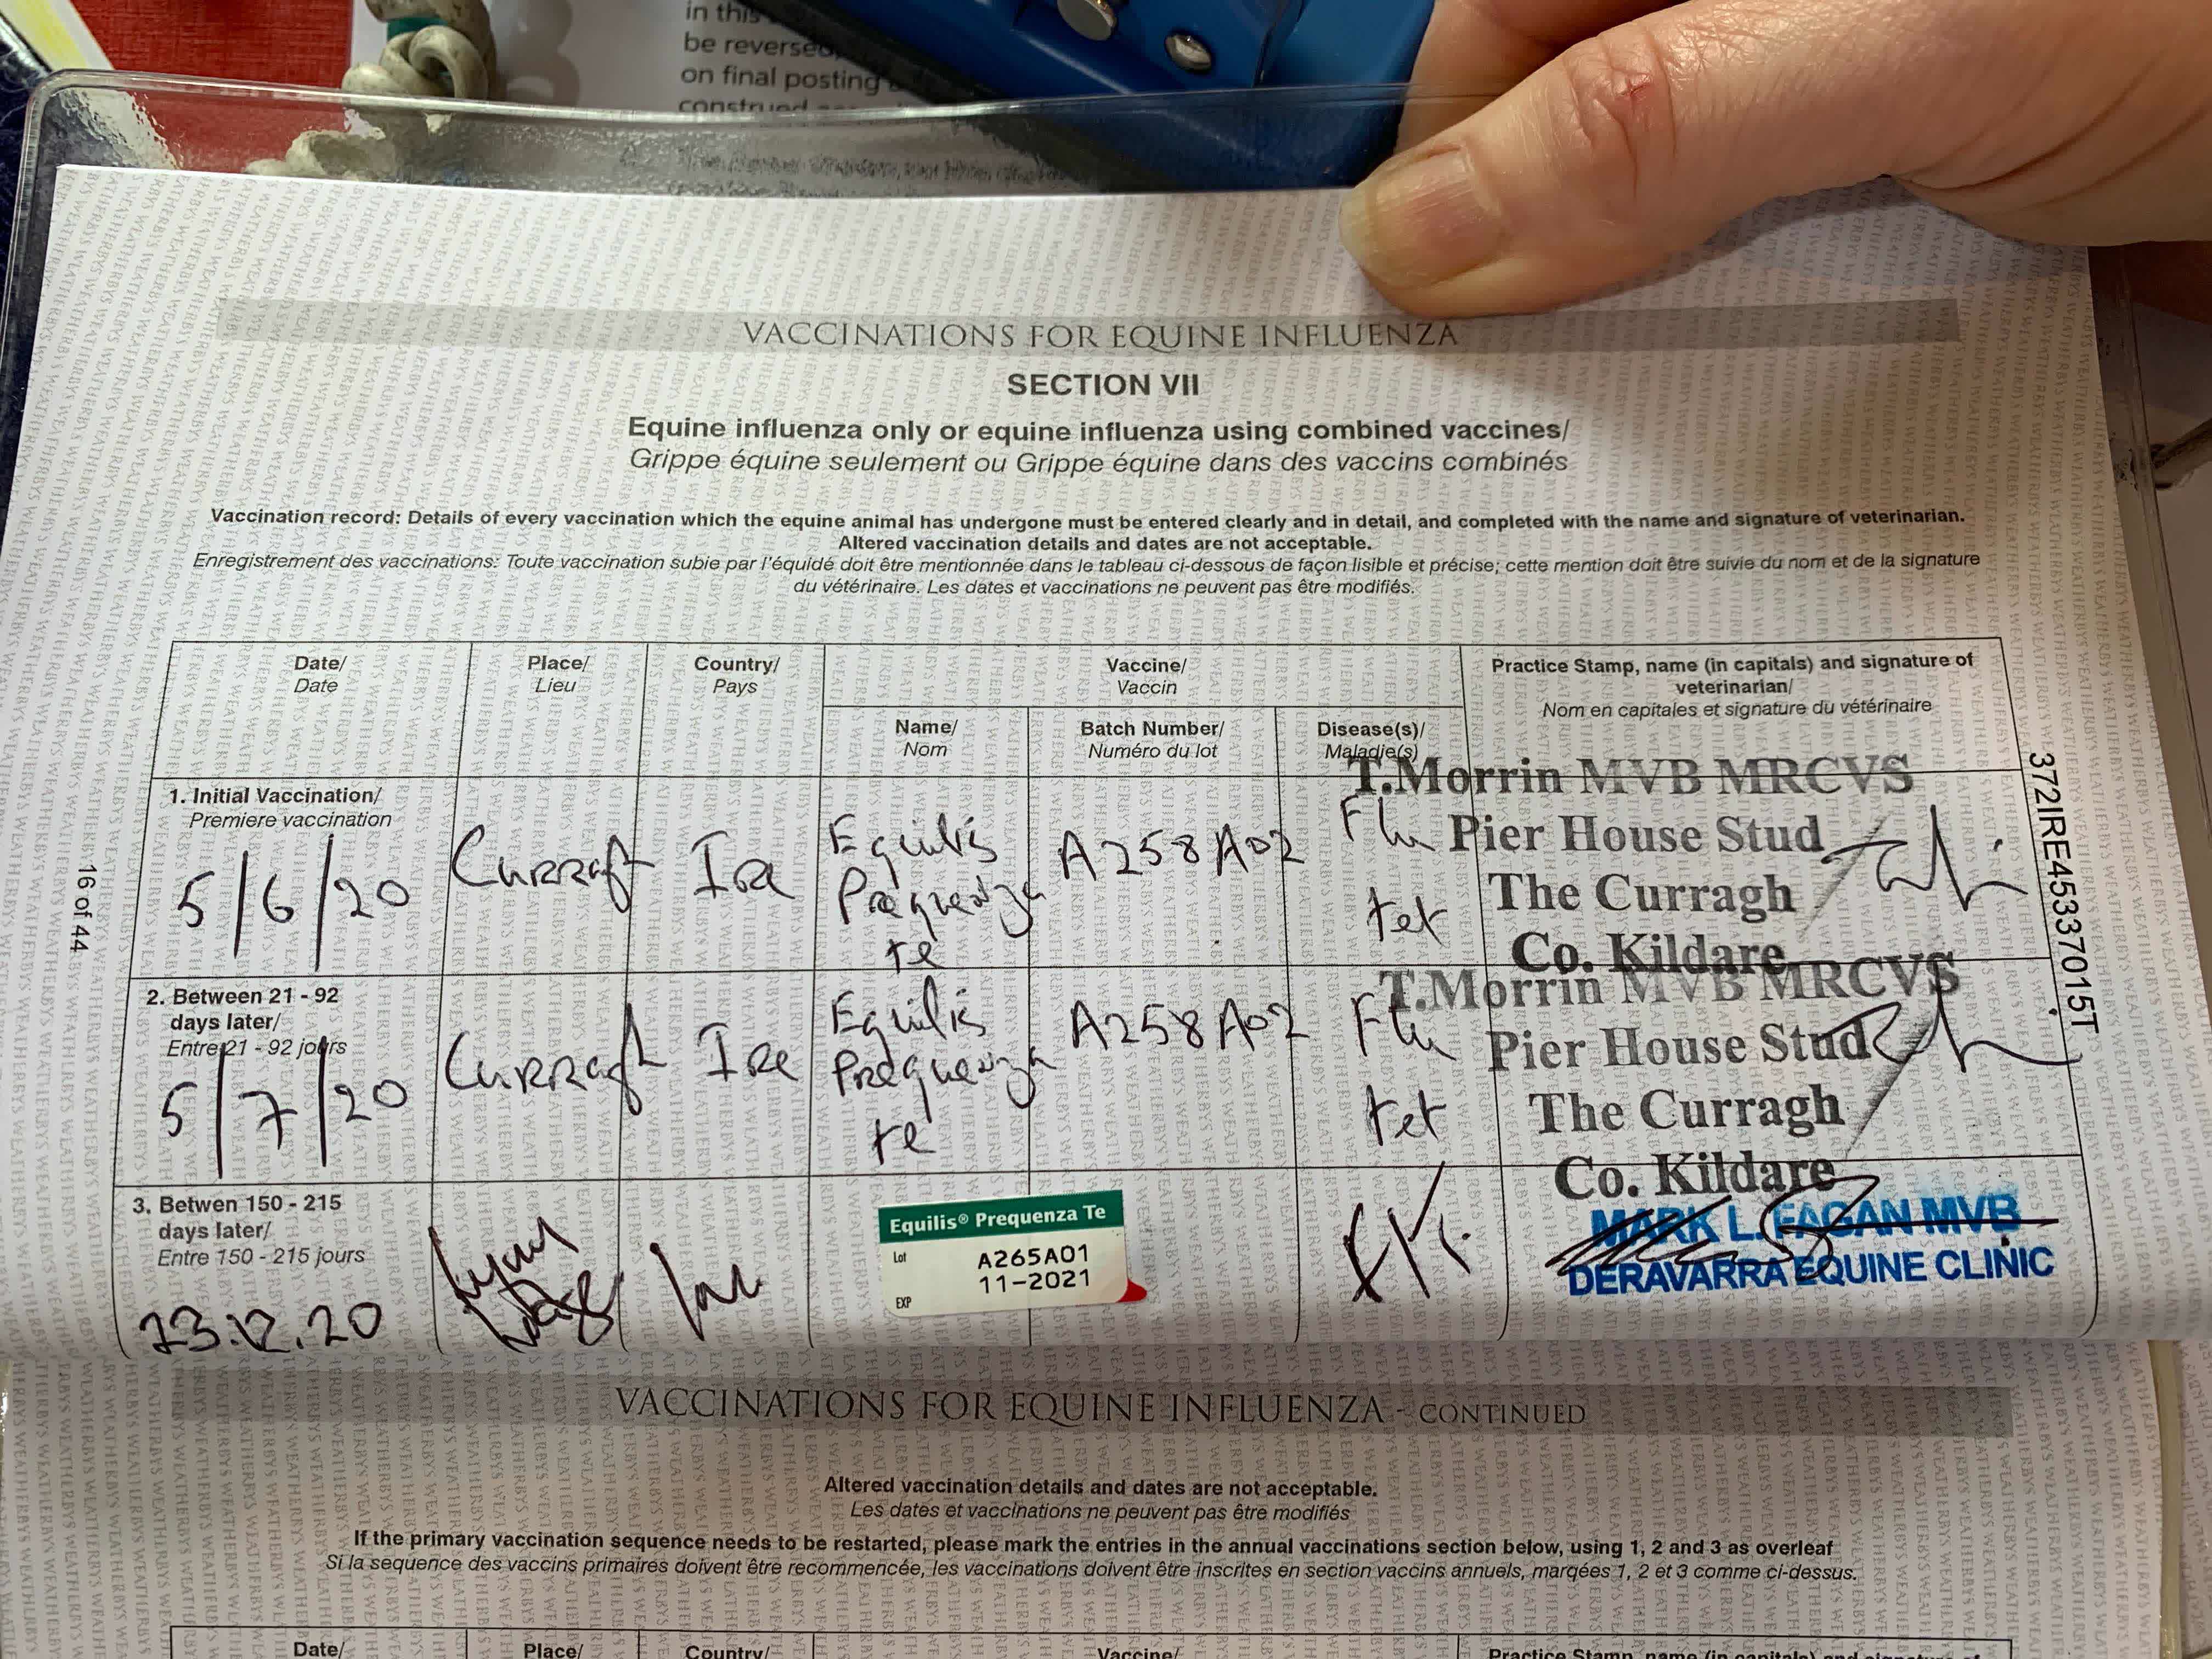 in this
be reversed,
on final posting
construed
VACCINATIONS FOR EQUINE INFLUENZA
SECTION VII
Equine influenza only or equine influenza using combined vaccines/
Grippe équine seulement ou Grippe équine dans des vaccins combinés
Vaccination record: Details of every vaccination which the equine animal has undergone must be entered clearly and in detail, and completed with the name and signature of veterinarian.
Altered vaccination details and dates are not acceptable.
Enregistrement des vaccinations: Toute vaccination subie par l'équidé doit être mentionnée dans le tableau ci-dessous de façon lisible et précise; cette mention doit être suivie du nom et de la signature
du vétérinaire. Les dates et vaccinations ne peuvent pas être modifiés.
Date/
Date
Place/
Lieu
Country/
Pays
Vaccine/
Vaccin
Name/
Nom
Batch Number/
Numéro du lot
Disease(s)/
Maladie(s)
Practice Stamp, name (in capitals) and signature of
veterinarian/
Nom en capitales et signature du vétérinaire
1. Initial Vaccination/
Premiere vaccination
5/6/20
Curragh
Ire
Equilis
Prequenza
te
A258A02
Flu
tet
T.Morrin MVB MRCVS
Pier House Stud
The Curragh
Co. Kildare
2. Between 21 - 92
days later/
Entre 21 - 92 jours
5/7/20
Curragh
Ire
Equilis
Prequenza
te
A258A02
Flu
tet
T.Morrin MVB MRCVS
Pier House Stud
The Curragh
Co. Kildare
3. Betwen 150 - 215
days later/
Entre 150 - 215 jours
23.12.20
Equilis® Prequenza Te
Lot A265A01
11-2021
EXP
MARK L. FAGAN MVB
DERAVARRA EQUINE CLINIC
16 of 44
372IRE45337015T
VACCINATIONS FOR EQUINE INFLUENZA - CONTINUED
Altered vaccination details and dates are not acceptable.
Les dates et vaccinations ne peuvent pas être modifiés
If the primary vaccination sequence needs to be restarted, please mark the entries in the annual vaccinations section below, using 1, 2 and 3 as overleaf
Si la sequence des vaccins primaires doivent être recommencée, les vaccinations doivent être inscrites en section vaccins annuels, marqées 1, 2 et 3 comme ci-dessus.
Date/
Place/
Country/
Vaccine/
Practice Stamp, name (in capitals) and signature of